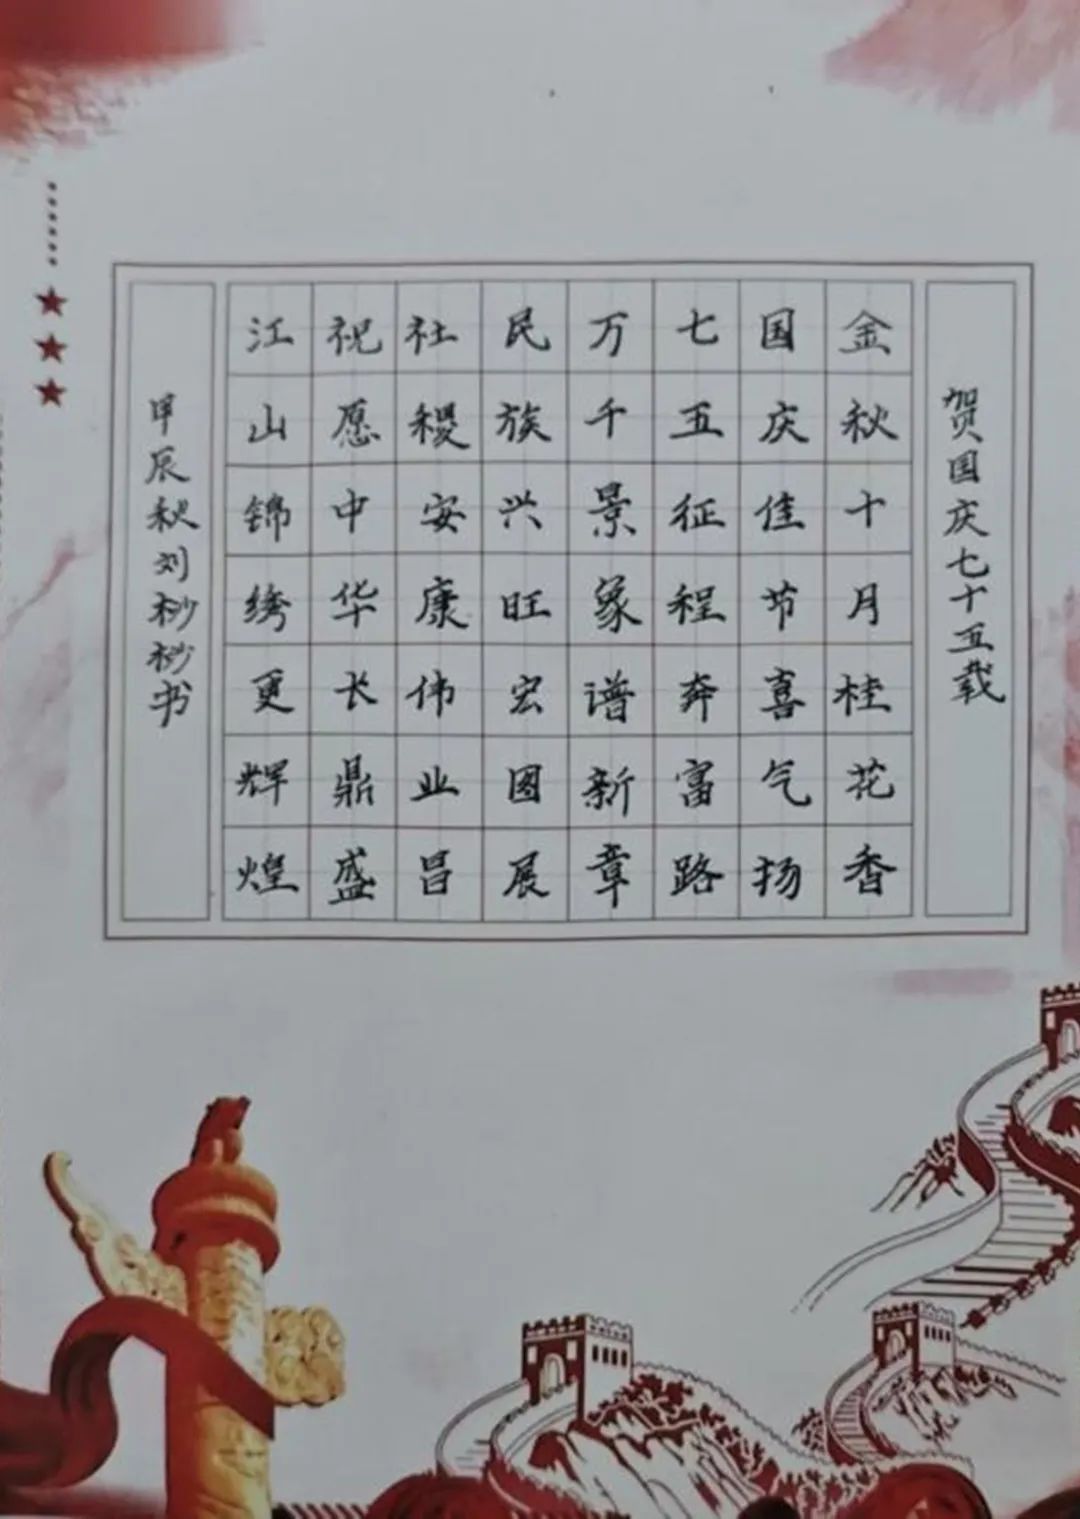 贺国庆七十五载
金秋十月桂花香
国庆佳节喜气扬
七五征程奔富路
万千景象谱新章
民族兴旺宏图展
社稷安康伟业昌
祝愿中华长鼎盛
江山锦绣更辉煌
甲辰秋刘杪杪书